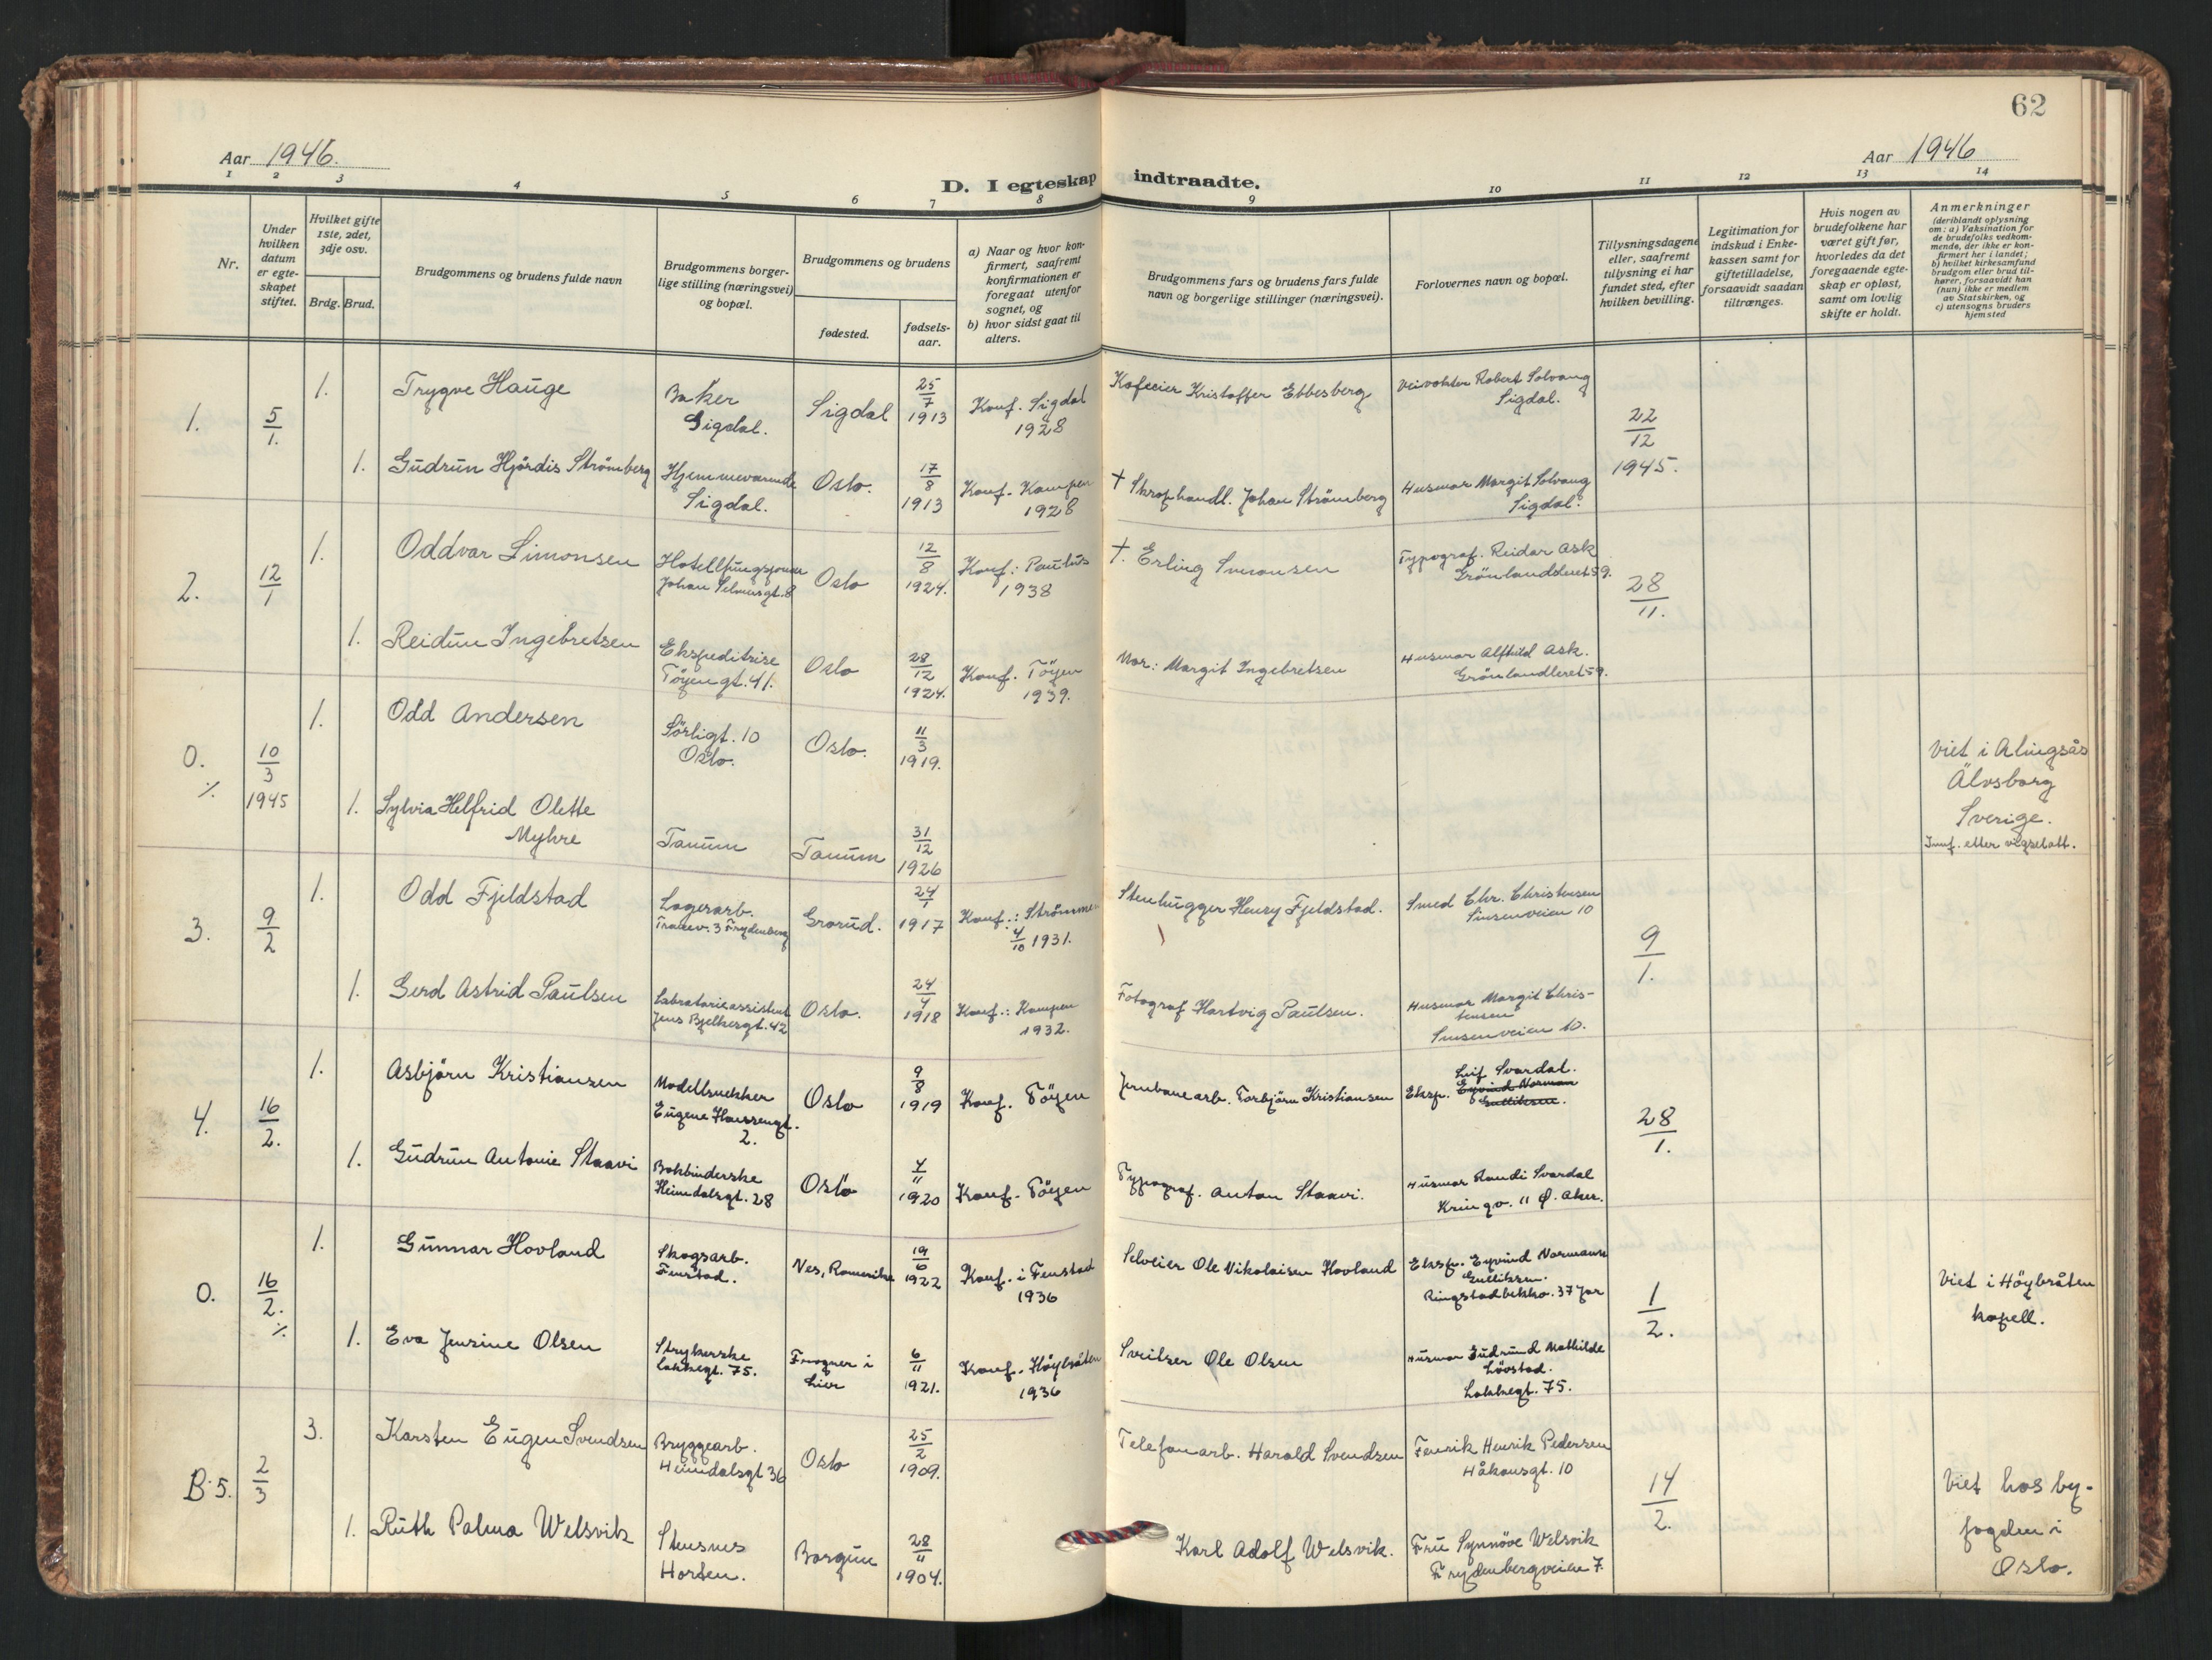 62
Aar 1946.
Aar 1946
D. I egteskap indtraadte.
1 2 3 4 5 6 7 8 9 10 11 12 13 14
Nr.
Under
hvilken
datum
er egte-
skapet
stiftet.
Hvilket gifte
1ste, 2det,
3dje osv.
Brdg. Brud.
Brudgommens og brudens fulde navn
Brudgommens borger-
lige stilling (næringsvei)
og bopæl.
Brudgommens og brudens
fødested.
fødsels-
aar.
a) Naar og hvor kon-
firmert, saafremt
konfirmationen er
foregaat utenfor
sognet, og
b) hvor sidst gaat til
alters.
Brudgommens fars og brudens fars fulde
navn og borgerlige stillinger (næringsvei).
Forlovernes navn og bopæl.
Tillysningsdagene
eller, saafremt
tillysning ei har
fundet sted, efter
hvilken bevilling.
Legitimation for
indskud i Enke-
kassen samt for
giftetilladelse,
forsaavidt saadan
tiltrænges.
Hvis nogen av
brudefolkene har
været gift før,
hvorledes da det
foregaaende egte-
skap er opløst,
samt om lovlig
skifte er holdt.
Anmerkninger
(deriblandt oplysning
om: a) Vaksination for
de brudefolks vedkom-
mende, der ikke er kon-
firmert her i landet;
b) hvilket kirkesamfund
brudgom eller brud til-
hører, forsaavidt han
(hun) ikke er medlem
av Statskirken, og
c) utensogns bruders
hjemsted
1. 5/1. 1. Trygve Hauge
Baker
Sigdal.
Sigdal
25/7
1913
Konf. Sigdal
1928
Kristoffer Ebbesberg
Veivokter Robert Solvang
Sigdal.
22/12
1945.
1. Gudrun Hjördis Strömberg
Hjemmeværende
Sigdal.
Oslo.
17/8
1913
Konf. Kampen
1928
† Skraphandl. Johan Strömberg
Husmor Margit Solvang
Sigdal.
2. 12/1 1. Oddvar Simonsen
Johan Selmersgt. 8
Oslo
12/8
1924.
Konf: Paulus
1938
†. Erling Simonsen
Typograf. Reidar Ask
Grönlandsleret 59.
28/11.
1. Reidun Ingebretsen
Ekspeditrise
Töyengt. 41.
Oslo
28/12
1924.
Konf. Töyen
1939.
Mor: Margit Ingebretsen
Husmor Alfhild Ask.
Grönlandleret 59.
0. ٪ 10/3
1945
1. Odd Andersen
Sörligt. 10
Oslo.
Oslo.
11/3
1919.
Viet i Alingsås
Älvsborg
Sverige.
1. Sylvia Helfrid Olette
Myhre
Tanum
Tanum
31/12
1926
3. 9/2 1. Odd Fjeldstad
Lagerarb.
Grorud.
24/1
1917
Konf.: Strömmen
4/10 1931.
Stenhugger Henry Fjeldstad.
Smed Chr. Christensen
Sinsenveien 10
9/1.
1. Gerd Astrid Paulsen
Labratorieassistent
Jens Bjelkesgt. 42
Oslo.
24/4
1918
Konf.: Kampen
1932.
Fotograf Hartvig Paulsen.
Husmor Margit Chris-
tensen
Sinsenveien 10.
4. 16/2. 1. Asbjörn Kristiansen
Modellsnekker
Eugene Hanssengt.
2.
Oslo
9/8
1919
Konf. Töyen
Jernbanearb. Torbjörn Kristiansen
Leif Svardal.
Eksp. Eyvind Norman
Gulliksen.
28/1.
1. Gudrun Antonie Staavi
Bokbinderske
Heimdalsgt. 28
Oslo
4/11
1920
Konf. Töyen
Typograf. Anton Staavi.
Husmor Randi Svardal
Kringv. 11 Ø. Aker.
0. 16/2. ٪ 1. Gunnar Hovland
Skogsarb.
Fenstad.
Nes, Romerike
19/6
1922
Konf. i Fenstad
1936
Selveier Ole Nikolaisen Hovland
Eksp. Eyvind Normann
Gulliksen.
Ringstadbekkv. 37 Jar
1/2.
Viet i Höybråten
kapell.
1. Eva Jensine Olsen
Strykerske
Lakkegt. 75.
Frogner i
Lier
6/11
1921.
Konf. Höybråten
1936
Sveitser Ole Olsen
Husmor Gudrund Mathilde
Lövstad.
Lakkegt. 75.
B. 5. 2/3 3. Karsten Eugen Svendsen
Bryggearb.
Heimdalsgt 36
Oslo
25/2
1909.
Telefonarb. Harald Svendsen
Fenrik Henrik Pedersen
Håkonsgt. 10
14/2.
Viet hos by-
fogden i
Oslo.
1. Ruth Palma Welsvik
Stensnes
Horten.
Borgun
28/11
1904.
Karl Adolf Welsvik.
Fru Synnöve Welsvik
Frydenbergveien 7.